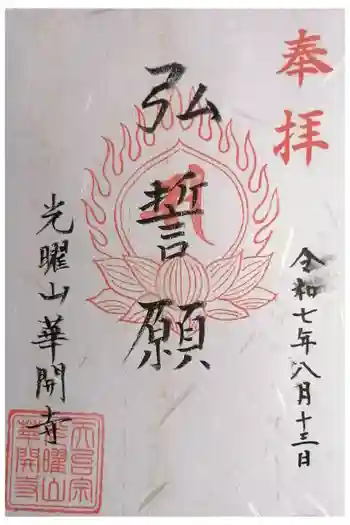 奉拝
弘誓願
令和七年八月十三日
光曜山華開寺
天台宗
光曜山
華開寺